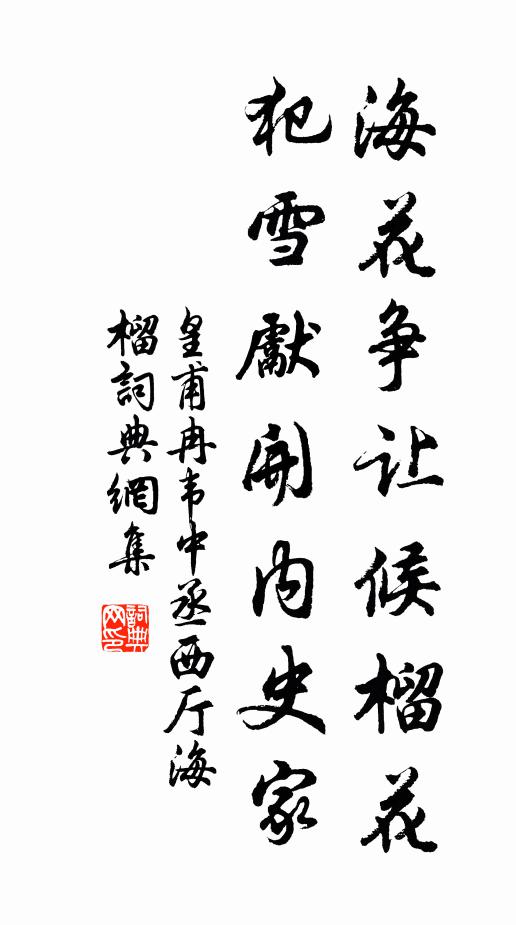 海花争让候榴花
犯雪獻開内史家
皇甫冉韦中丞西厅海
榴詞典網集
詞典
网印